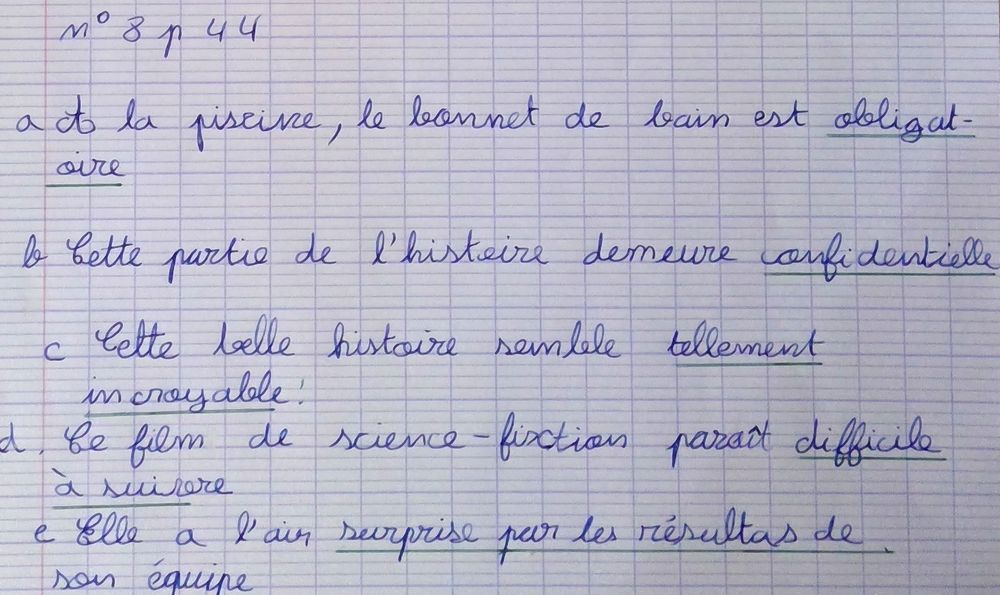 n° 8 p 44
a À la piscine, le bonnet de bain est obligat-
oire
b Cette partie de l'histoire demeure confidentielle
c Cette belle histoire semble tellement
incroyable!
d. Ce film de science-fixction paraît difficile
à suivre
e Elle a l'air surprise par les résultas de
son équipe